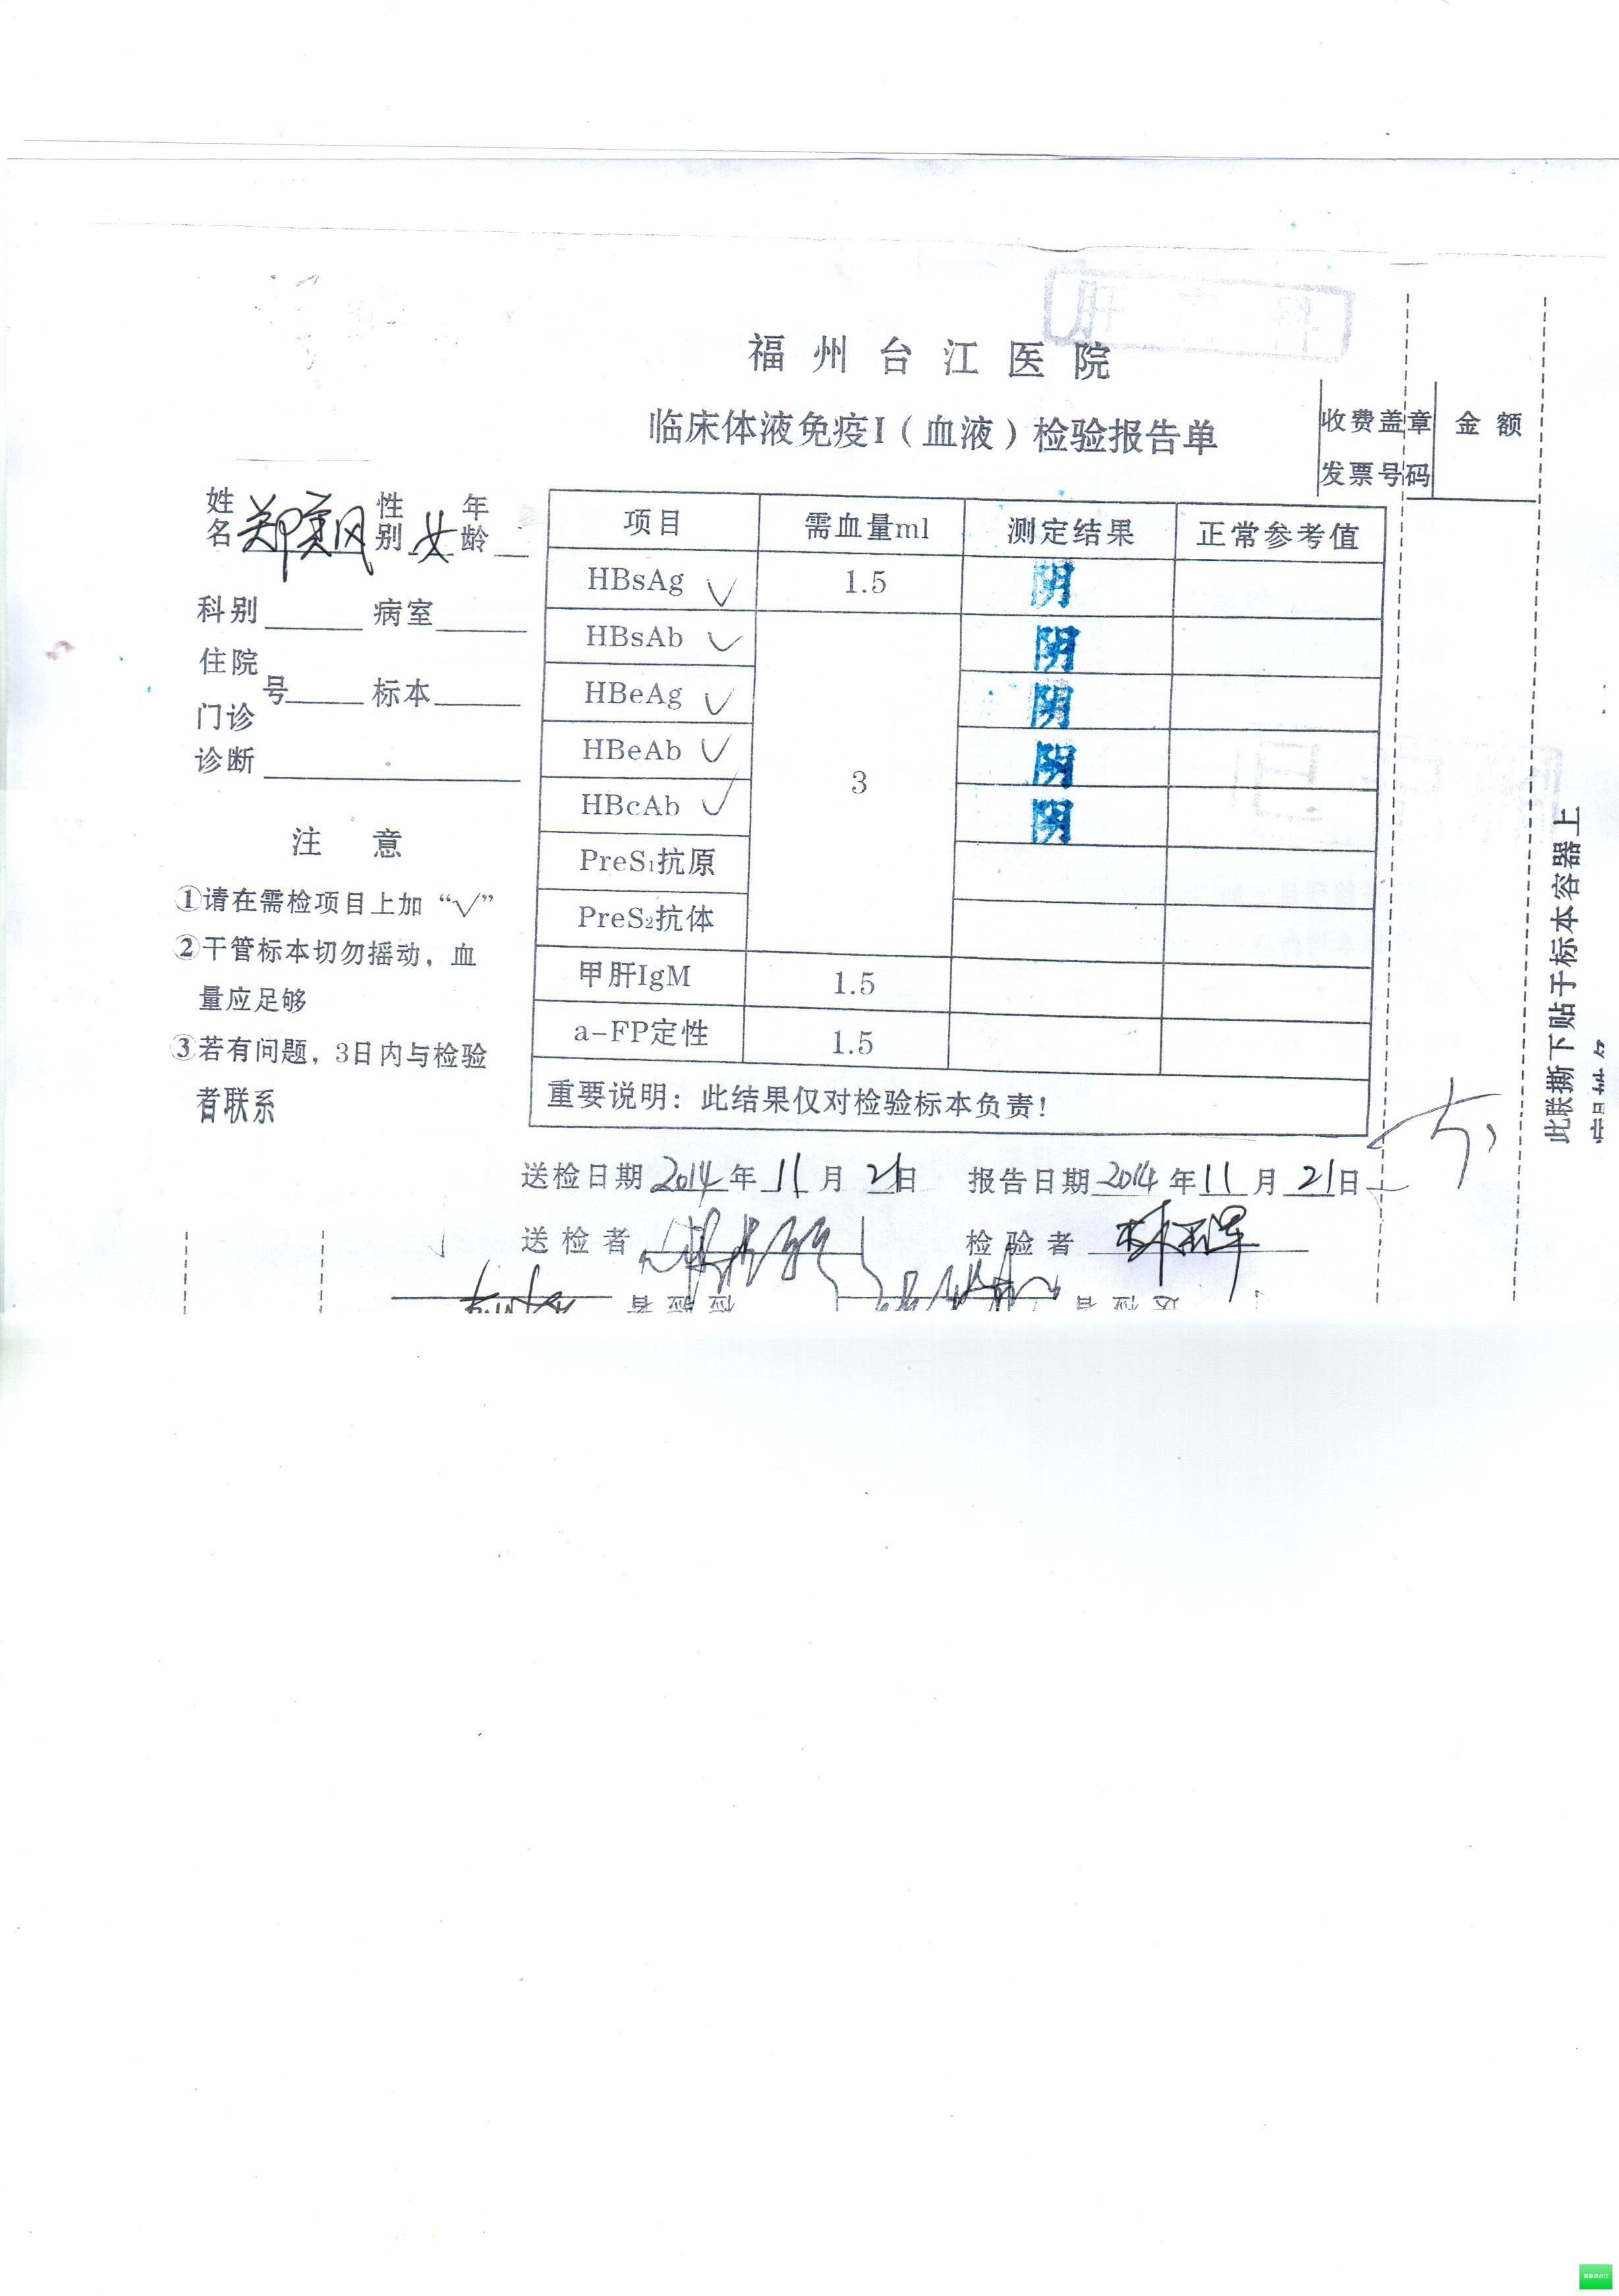 福州台江医院
临床体液免疫I（血液）检验报告单
收费盖章 金额
发票号码
姓名 郑美凤 性别 女 年龄
科别 病室
住院
号 标本
门诊
诊断
注 意
①请在需检项目上加“√”
②干管标本切勿摇动，血
量应足够
③若有问题，3日内与检验
者联系
项目 需血量ml 测定结果 正常参考值
HBsAg √ 1.5 阴
HBsAb √ 阴
HBeAg √ 阴
HBeAb √ 3 阴
HBcAb √ 阴
PreS₁抗原
PreS₂抗体
甲肝IgM 1.5
a-FP定性 1.5
重要说明：此结果仅对检验标本负责！
送检日期 2014 年 11 月 21 日 报告日期 2014 年 11 月 21 日
送检者 检验者
此联撕下贴于标本容器上